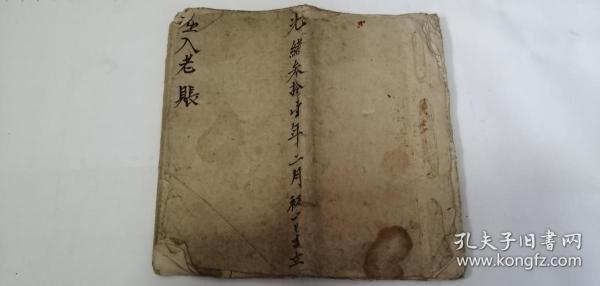 入老賬
光緒叁拾年二月初一日立
孔夫子旧书网
www.kongfz.com